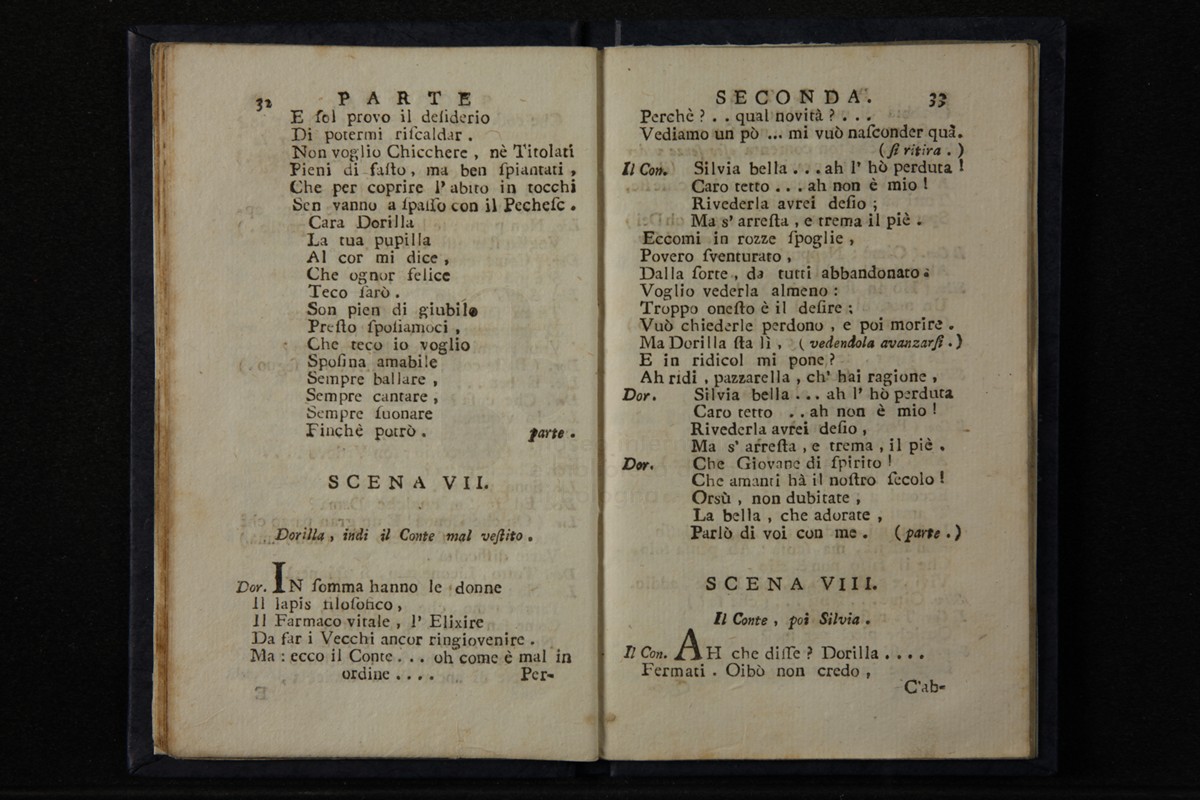 32 PARTE
E ſol provo il deſiderio
Di potermi riſcaldar.
Non voglio Chicchere, nè Titolati
Pieni di faſto, ma ben ſpiantati,
Che per coprire l'abito in tocchi
Sen vanno a ſpaſſo con il Pecheſc.
Cara Dorilla
La tua pupilla
Al cor mi dice,
Che ognor felice
Teco ſarò.
Son pien di giubilo
Preſto ſpoſiamoci,
Che teco io voglio
Spoſina amabile
Sempre ballare,
Sempre cantare,
Sempre ſuonare
Finchè potrò. parte.
SCENA VII.
Dorilla, indi il Conte mal veſtito.
Dor. IN ſomma hanno le donne
Il lapis filoſofico,
Il Farmaco vitale, l'Elixire
Da far i Vecchi ancor ringiovenire.
Ma: ecco il Conte... oh come è mal in
ordine.... Per-
SECONDA. 33
Perchè?.. qual novità?...
Vediamo un pò ... mi vuò naſconder quà.
(ſi ritira.)
Il Con. Silvia bella... ah l'hò perduta!
Caro tetto... ah non è mio!
Rivederla avrei deſio;
Ma s'arreſta, e trema il piè.
Eccomi in rozze ſpoglie,
Povero ſventurato,
Dalla ſorte, da tutti abbandonato.
Voglio vederla almeno:
Troppo oneſto è il deſire;
Vuò chiederle perdono, e poi morire.
Ma Dorilla ſta lì, (vedendola avanzarſi.)
E in ridicol mi pone?
Ah ridi, pazzarella, ch'hai ragione,
Dor. Silvia bella... ah l'hò perduta
Caro tetto .. ah non è mio!
Rivederla avrei deſio,
Ma s'arreſta, e trema, il piè.
Dor. Che Giovane di ſpirito!
Che amanti hà il noſtro ſecolo!
Orsù, non dubitate,
La bella, che adorate,
Parlò di voi con me. (parte.)
SCENA VIII.
Il Conte, poi Silvia.
Il Con. AH che diſſe? Dorilla....
Fermati. Oibò non credo,
C'ab-